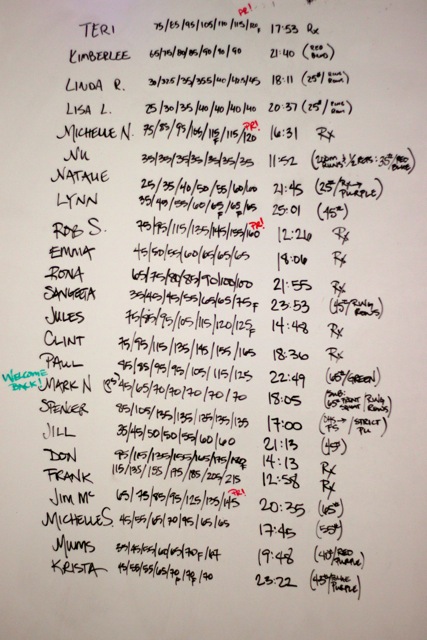 PR!
TERI 75/85/95/105/110/115/120F 17:53 Rx
KIMBERLEE 65/75/80/85/90/90/90 21:40 (RED BAND)
LINDA R. 18:11 (25#/RING ROWS)
LISA L. 25/30/35/40/40/40/40 20:37 (25#/RING ROWS)
PR!
MICHELLE N. 75/85/95/105/115F/115/120 16:31 Rx
NU 35/35/35/35/35/35/35 11:52
NATALIE 25/35/40/50/55/60/60 21:45 PURPLE)
LYNN 35/40/55/60/65F/65F/65 25:01 (45#)
PR!
ROB S. 75/95/115/135/145/155/160 12:26 Rx
EMMA 45/50/55/60/65/65/65 18:06 Rx
RONA 65/75/80/85/90/100/100 21:55 Rx
SANGEETA 35/40/45/55/65/65/75F 23:53 (45#/RING ROWS)
JULES 75/85/95/105/115/120/125F 14:48 Rx
CLINT 75/95/115/135/145/155/165 18:36 Rx
PAUL 95/105/115/125 22:49 (65#/GREEN)
WELCOME BACK!
MARK N 45/65/70/70/70/70/70 18:05
SPENCER 85/105/135/135/135/135/135 17:00 STRICT PU
JILL 35/45/50/50/55/60/60 21:13 (45#)
DON 95/115/135/155/165/175 14:13 Rx
FRANK 115/135/155/175/185/205/215 12:58 Rx
PR!
JIM Mc 65/75/85/95/125/135/145 20:35 (65#)
MICHELLE S. 45/55/65/70/95/65/65 17:45 (55#)
MUMS 19:48 (40#/RED PURPLE)
KRISTA 45/55/55/65/70F/70F/70 23:22 (45#/BLUE PURPLE)